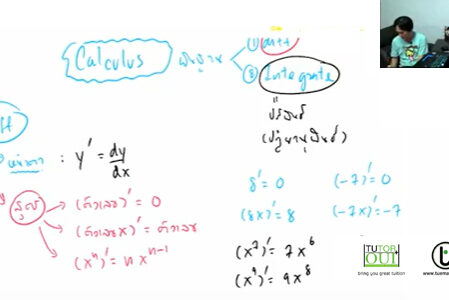 Calculus พื้นฐาน ① diff
② Integrate
ปริพันธ์
(ปฏิยานุพันธ์)
: y' = dy/dx
สูตร
(ตัวเลข)' = 0
(ตัวเลขx)' = ตัวเลข
(xⁿ)' = n xⁿ⁻¹
8' = 0 (-7)' = 0
(8x)' = 8 (-7x)' = -7
(x⁷)' = 7x⁶
(x⁹)' = 9x⁸
TUTOR OUI
bring you great tuition